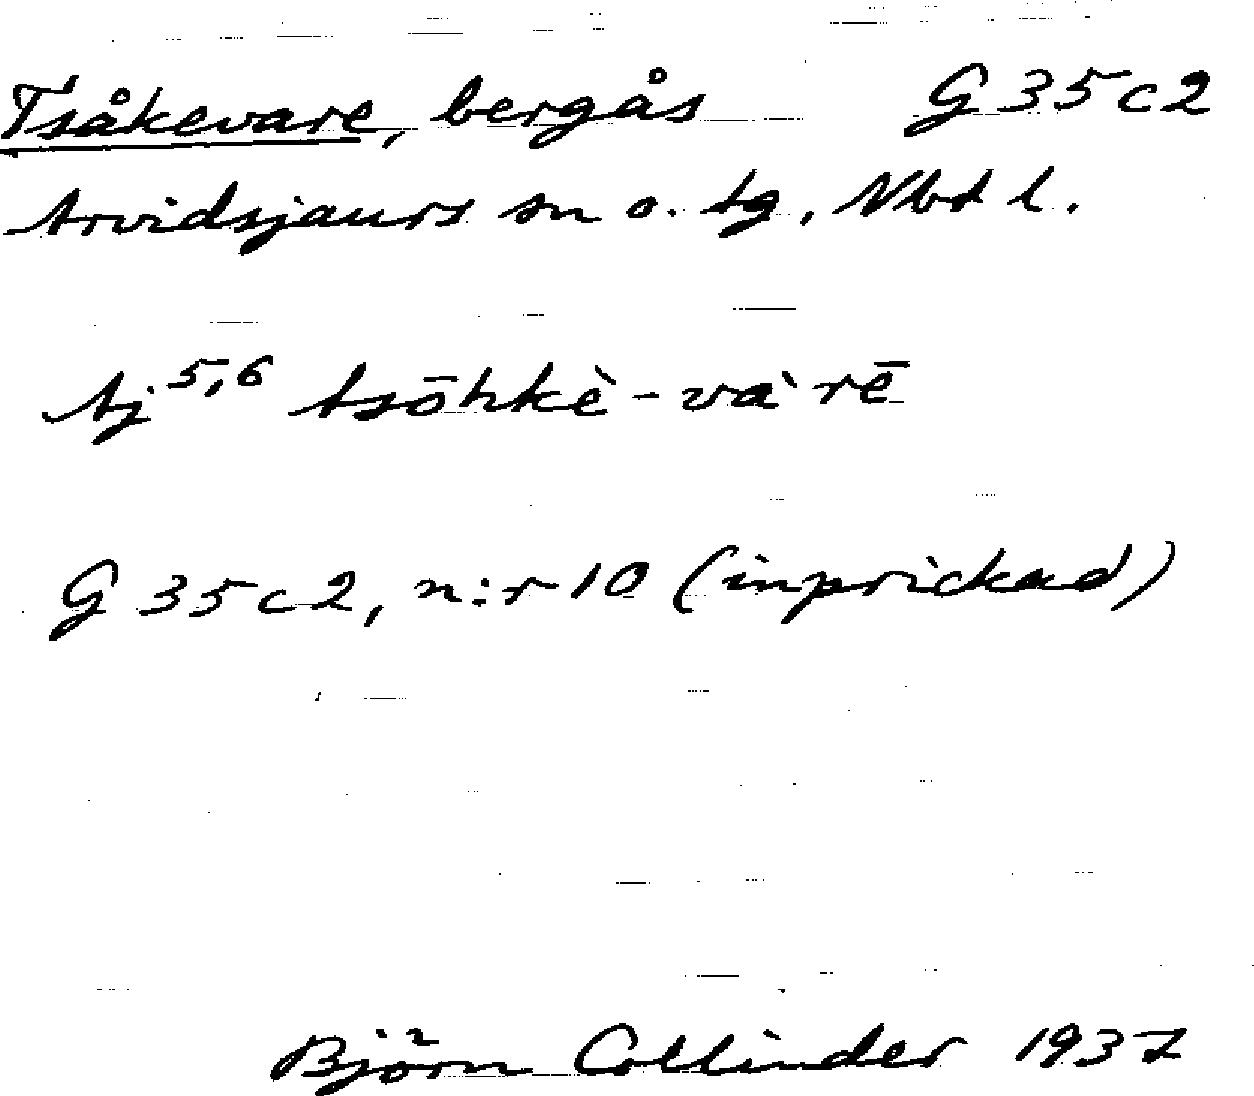 Tsåkevare, bergås G 35 c 2
Arvidsjaurs sn o. tg, Nbt l.
Aj 5,6 tsōhkè-và`rē
G 35 c 2, n:r 10 (inprickad)
Björn Collinder 1937